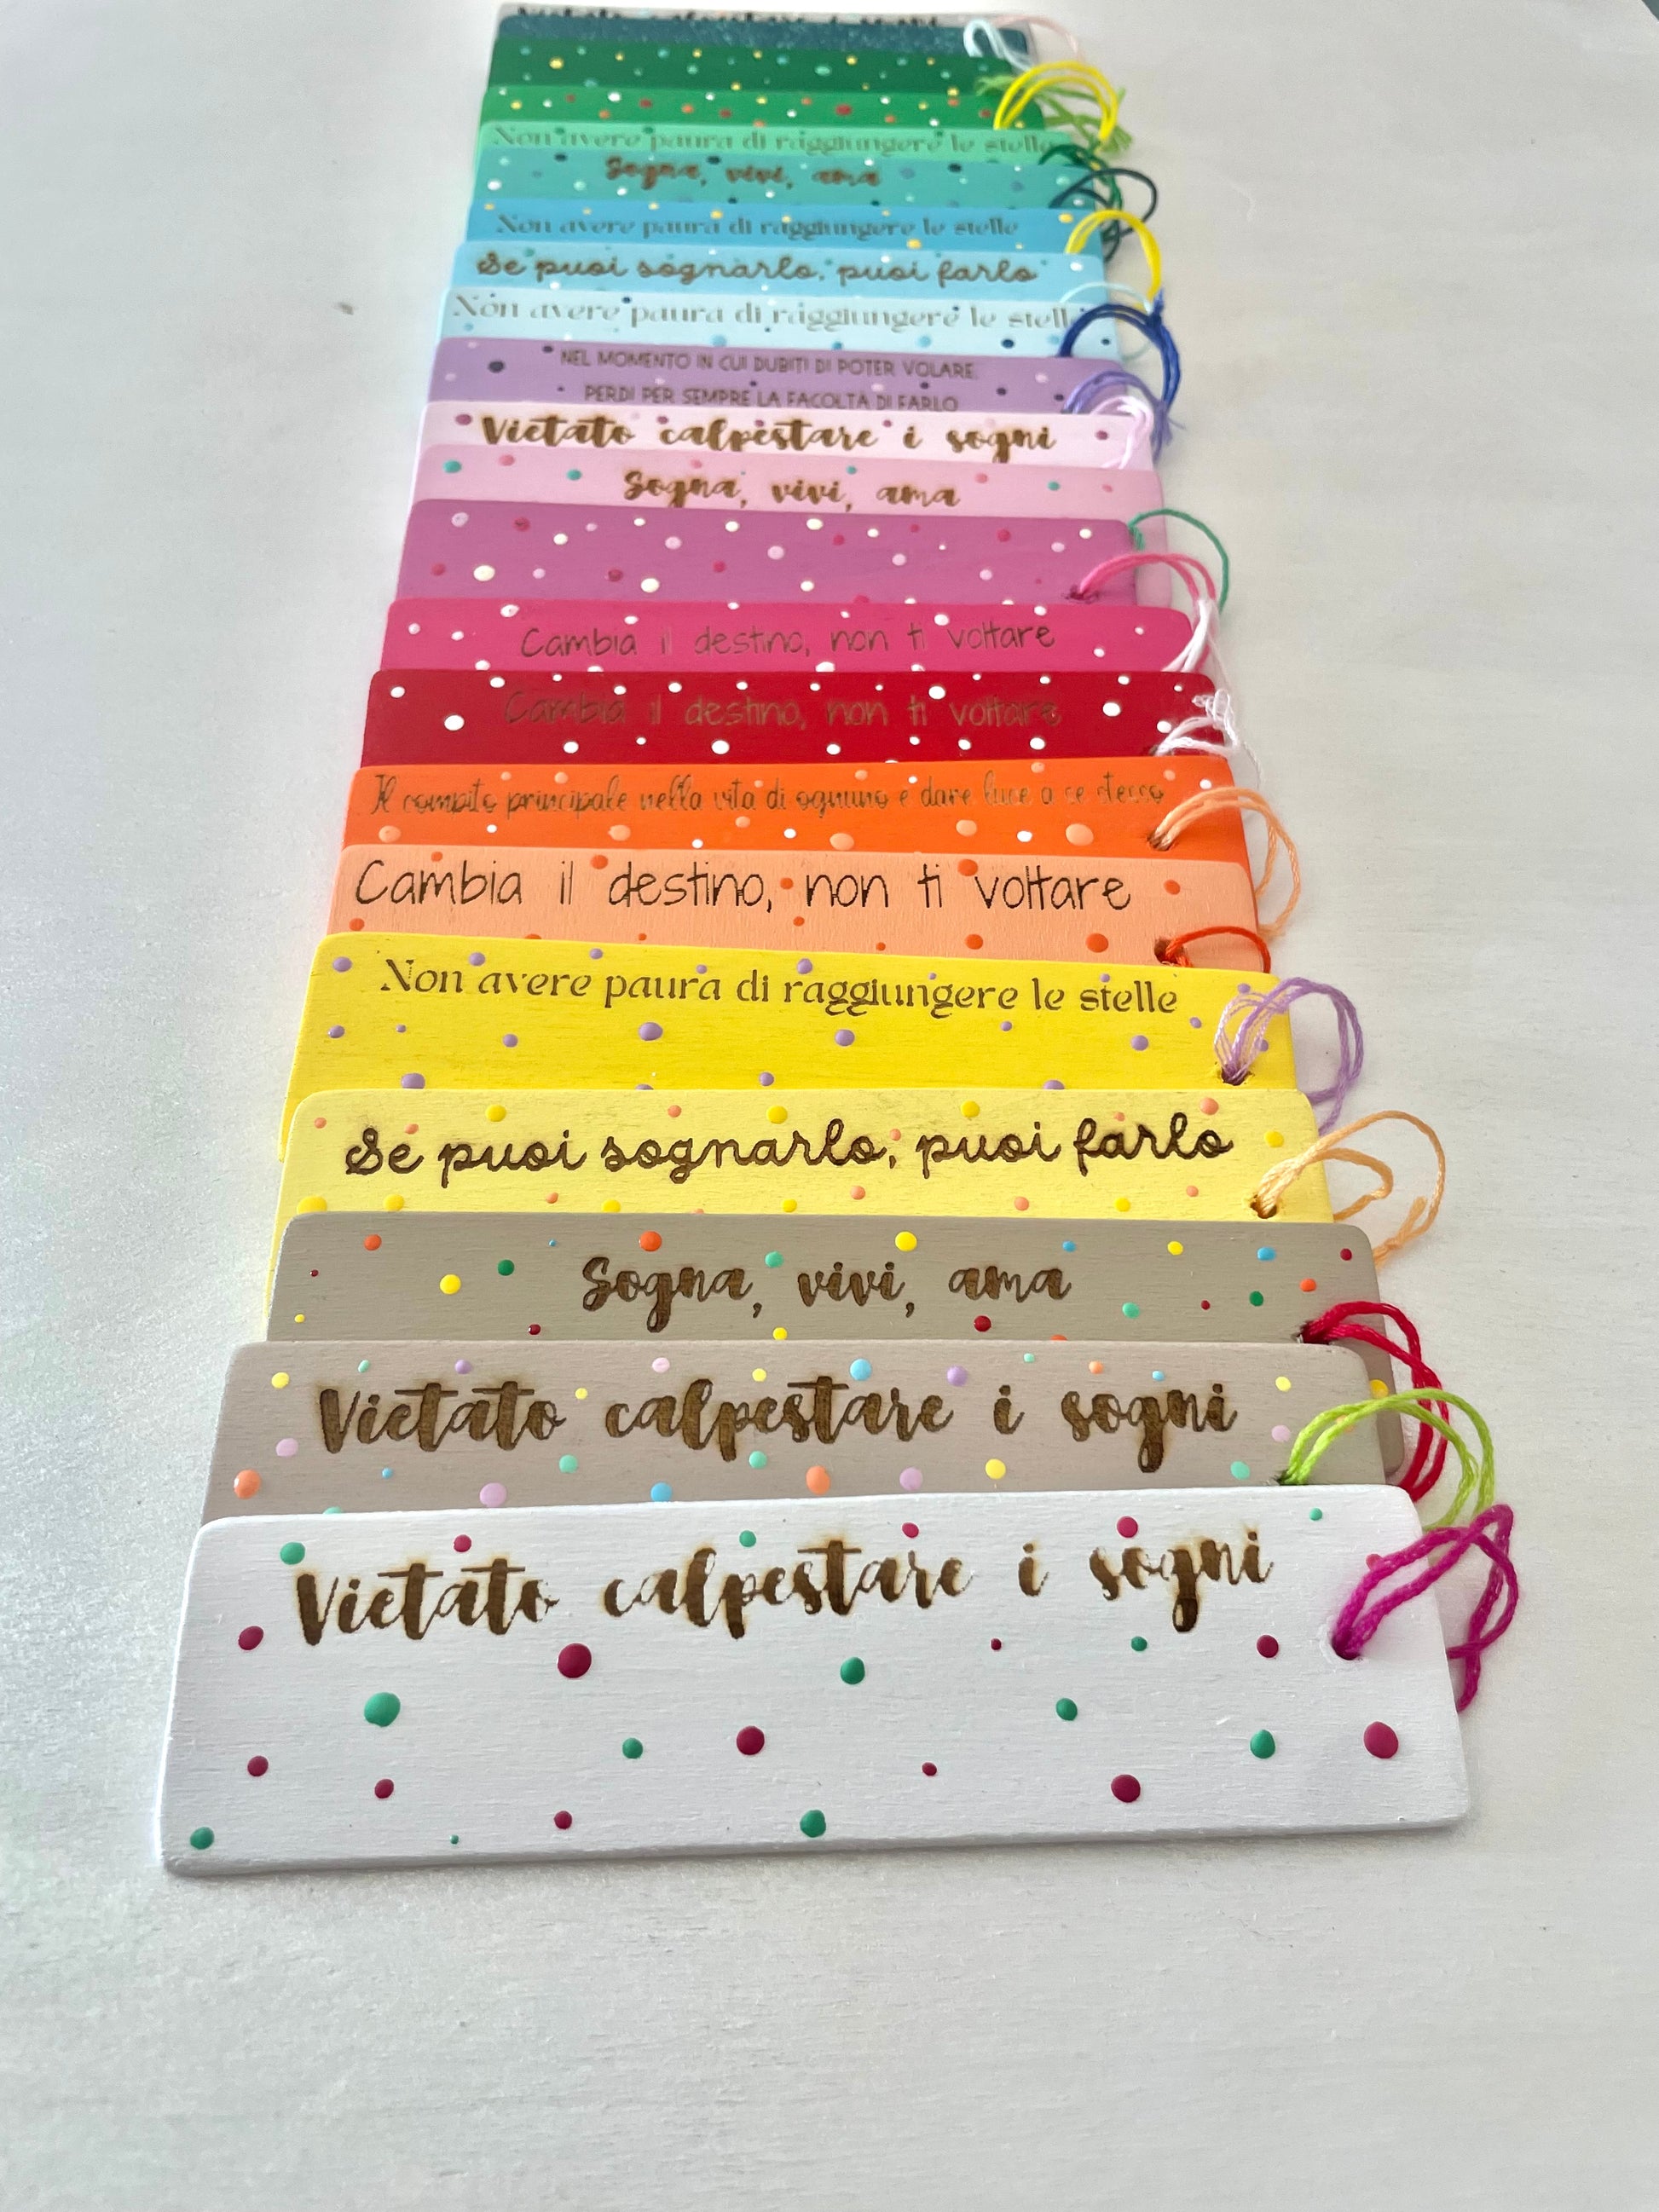 Vietato calpestare i sogni
Non avere paura di raggiungere le stelle
Sogna, vivi, ama
Non avere paura di raggiungere le stelle
Se puoi sognarlo, puoi farlo
Non avere paura di raggiungere le stelle
NEL MOMENTO IN CUI DUBITI DI POTER VOLARE
PERDI PER SEMPRE LA FACOLTÀ DI FARLO
Vietato calpestare i sogni
Sogna, vivi, ama
Cambia il destino, non ti voltare
Cambia il destino, non ti voltare
Il compito principale nella vita di ognuno è dare luce a se stesso
Cambia il destino, non ti voltare
Non avere paura di raggiungere le stelle
Se puoi sognarlo, puoi farlo
Sogna, vivi, ama
Vietato calpestare i sogni
Vietato calpestare i sogni